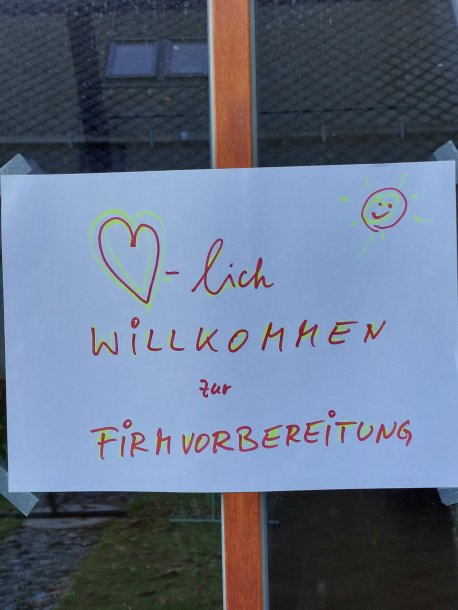 -lich
WILLKOMMEN
zur
FIRMVORBEREITUNG